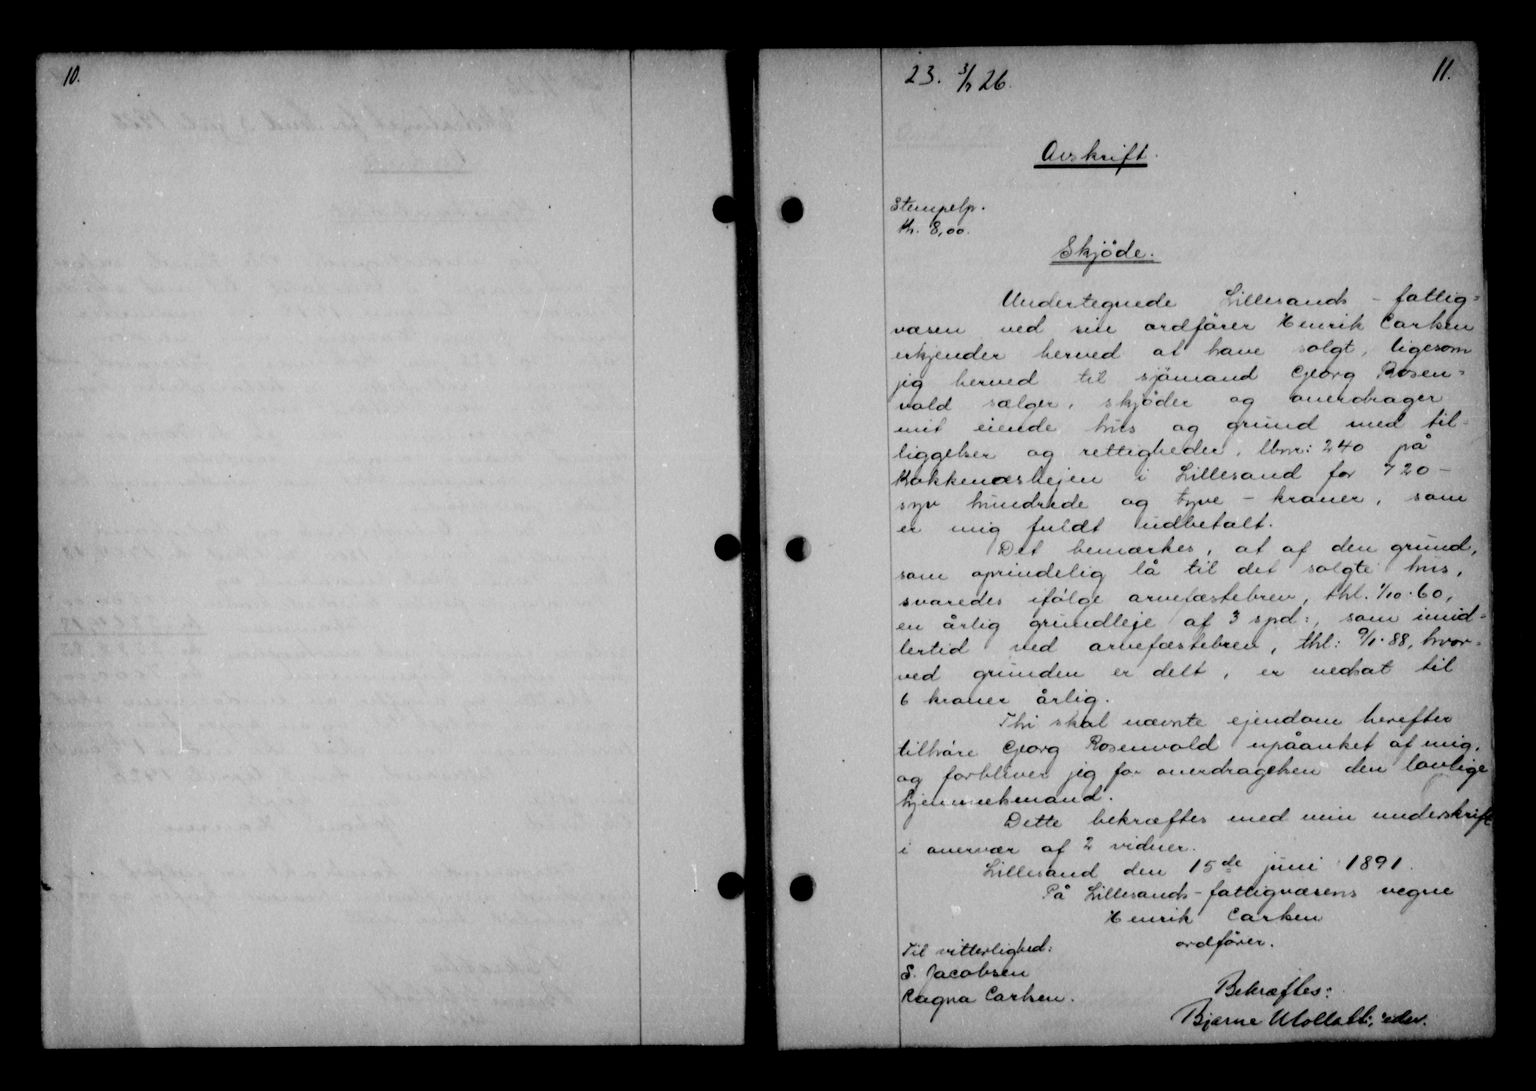 10.
23. 3/7 26.
11.
Avskrift.
Stempelp.
Kr. 8,00.
Skjöde.
Undertegnede Lillesands-fattig=
væsen ved sin ordförer Henrik Carlsen
erkjender herved at have solgt, ligesom
jeg herved til sjömand Georg Rosen=
vold sælger, skjöder og overdrager
mit eiende hus og grund med til-
liggelser og rettigheder, lbnr: 240 på
Kokkenæsheien i Lillesand for 720 -
syv hundrede og tyve - kroner, som
er mig fuldt udbetalt.
Det bemærkes, at af den grund,
som oprindelig lå til det solgte hus,
svaredes ifölge arvefæstebrev, thl. 1/10-60,
en årlig grundleje af 3 spd:, som imid-
lertid ved arvefæstebrev, thl: 88, hvor-
ved grunden er delt, er nedsat til
6 kroner årlig.
Thi skal nævnte ejendom herefter
tilhöre Georg Rosenvold upåanket af mig,
og forbliver jeg for overdragelsen den lovlige
hjemmelsmand.
Dette bekræftes med min underskrift
i overvær af 2 vidner.
Lillesand den 15de juni 1891.
På Lillesands-fattigvæsens vegne
Henrik Carlsen
ordförer.
Til vitterlighed:
S. Jacobsen
Ragna Carlsen.
Bekræftes:
Bjarne